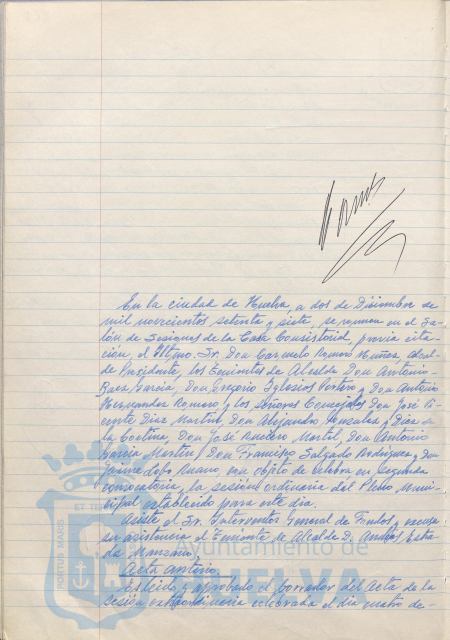 En la ciudad de Huelva, a dos de Diciembre de
mil novecientos setenta y siete, se reunen en el Sa-
lón de Sesiones de la Casa Consistorial, previa cita-
ción, el Iltmo. Sr. Don Carmelo Romero Núñez, Alcal-
de Presidente, los Tenientes de Alcalde Don Antonio
Baez García, Don Gregorio Iglesias y Don Antonio
Hernandez Romero y los Señores Concejales Don José Vi-
cente Diaz Martin, Don Alejandro Gonzalez y Diaz de
la Cortina, Don José Martel, Don Antonio
García Martin, Don Francisco Salgado Rodriguez y Don
Jaime Lobo Ruano, con objeto de celebrar en segunda
convocatoria, la sesión ordinaria del Pleno Muni-
cipal establecido para este dia.
Asiste el Sr. Interventor General de Fondos y excusa
su asistencia el Teniente de Alcalde D. Andrés Estra-
da Manzano.
Acta anterior.
Es leido y aprobado el borrador del Acta de la
sesión extraordinaria celebrada el dia cuatro de-
Ayuntamiento de
HUELVA
PORTUS MARIS
ET TERRAE